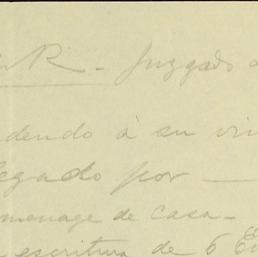 R - Juzgado
dendo à su
legado por —
menage de casa -
escritura de 6